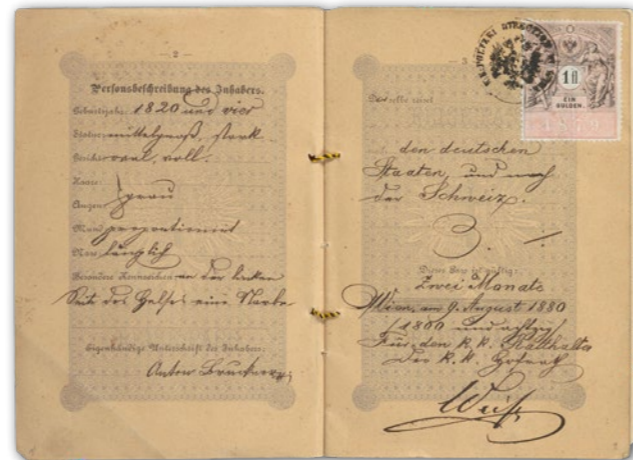 — 2 —
Personsbeschreibung des Inhabers.
Geburtsjahr: 1820 und vier
Statur: mittelgroß, stark
Gesicht: oval, voll.
Haare:
grau
Augen:
Mund: proportionirt
Nase: länglich
Besondere Kennzeichen: an der linken
Seite des Halses eine Narbe
Eigenhändige Unterschrift des Inhabers.
Anton Bruckner
— 3
K.K. POLIZEI DIRECTION
1 fl
EIN
GULDEN.
Derselbe reist
den deutschen
Staaten, und nach
der Schweiz.
3. ./.
Dieser Pass ist giltig:
Zwei Monate
Wien, am 9. August 1880
/1800 und achtzig/
Für den k. k. Statthalter
Der k. k. Hofrath
Weiß